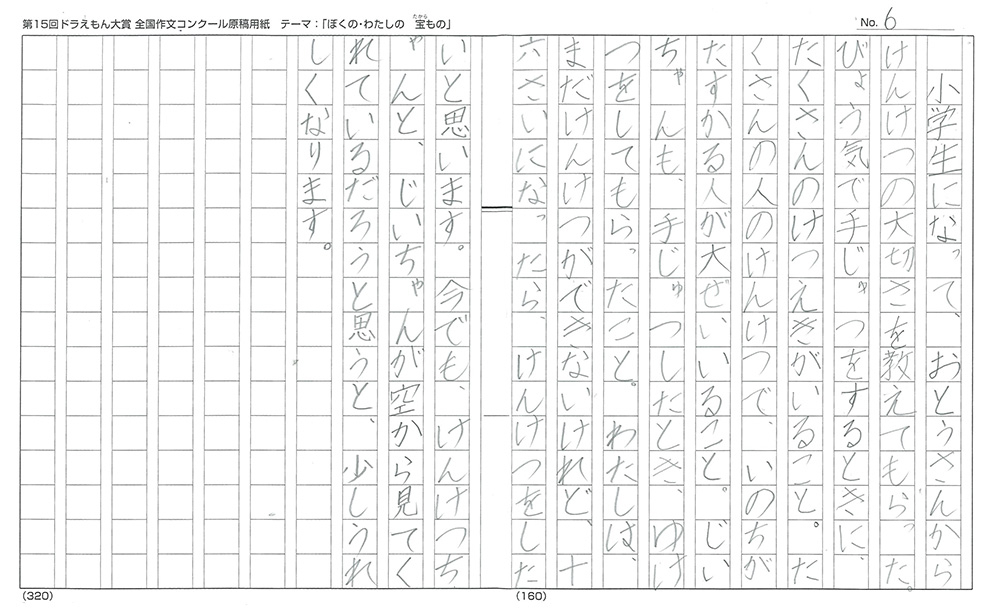 第15回ドラえもん大賞 全国作文コンクール原稿用紙 テーマ：「ぼくの・わたしの 宝もの」
たから
No. 6
小学生になって、おとうさんから
けんけつの大切さを教えてもらった。
びょう気で手じゅつをするときに、
たくさんのけつえきがいること。た
くさんの人のけんけつで、いのちが
たすかる人が大ぜいいること。じい
ちゃんも、手じゅつしたとき、ゆけ
つをしてもらったこと。わたしは、
まだけんけつができないけれど、十
六さいになったら、けんけつをした
いと思います。今でも、けんけつち
ゃんと、じいちゃんが空から見てく
れているだろうと思うと、少しうれ
しくなります。
(320)
(160)